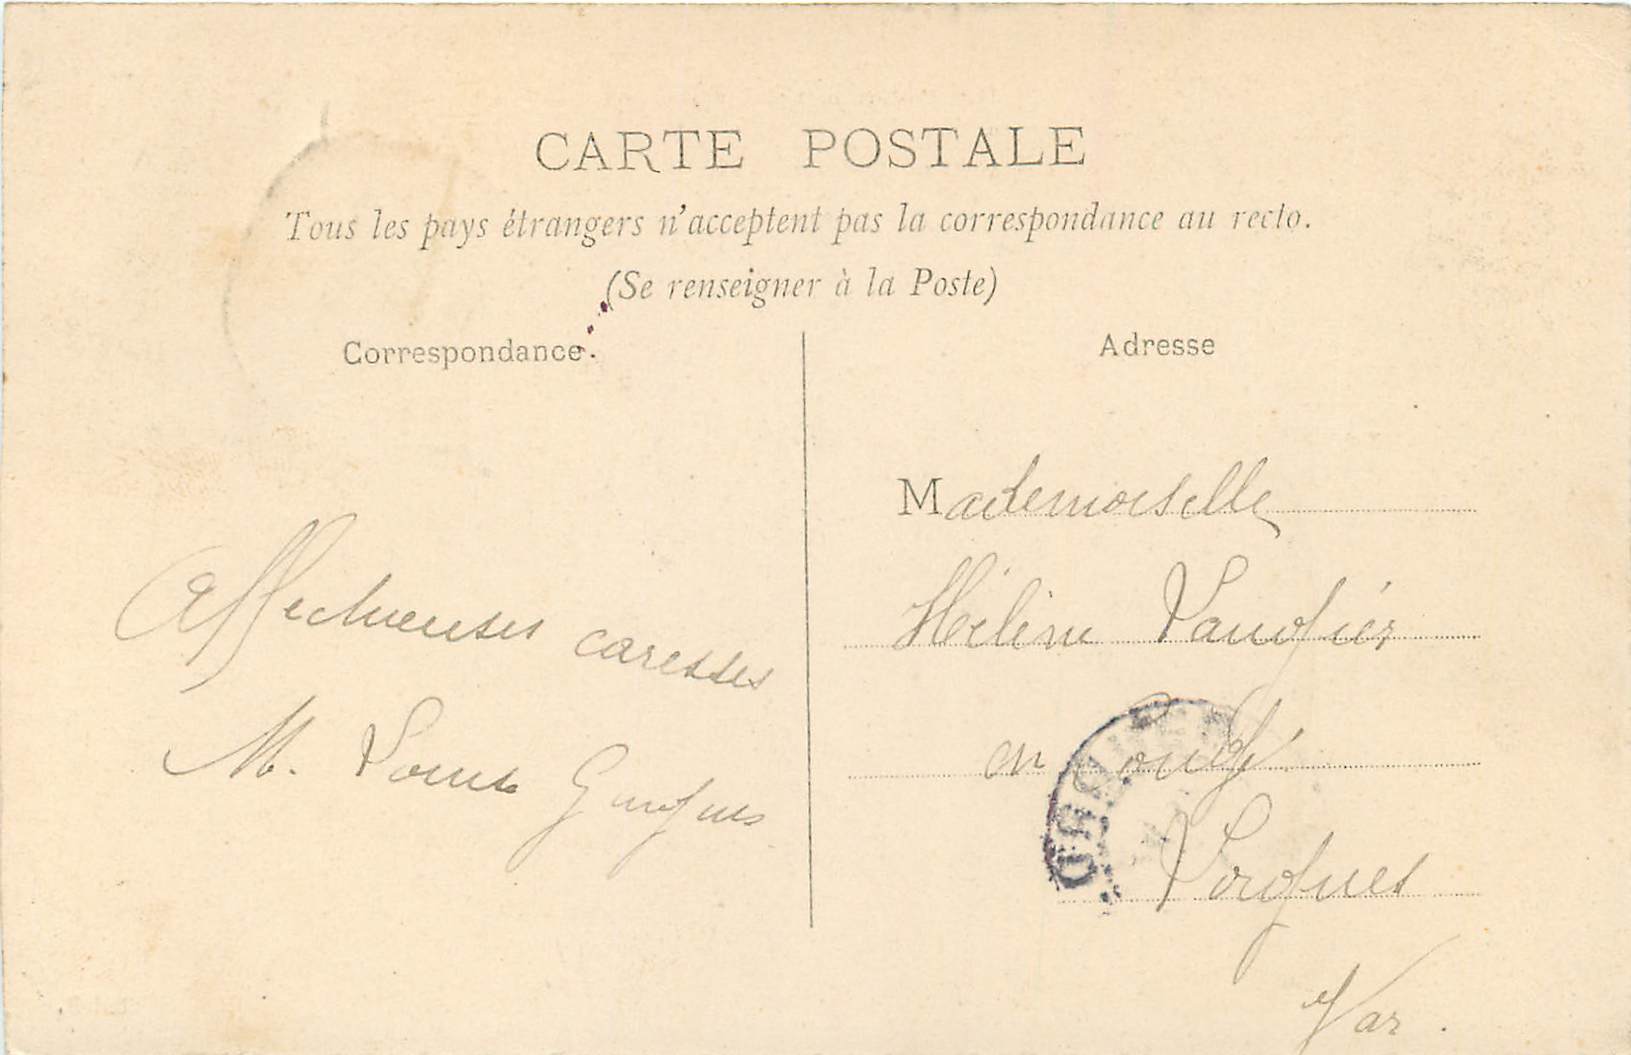 CARTE POSTALE
Tous les pays étrangers n'acceptent pas la correspondance au recto.
(Se renseigner à la Poste)
Correspondance.
Adresse
Affectueuses caresses
M. Louis
Mademoiselle
Hélène
en congé
Var.